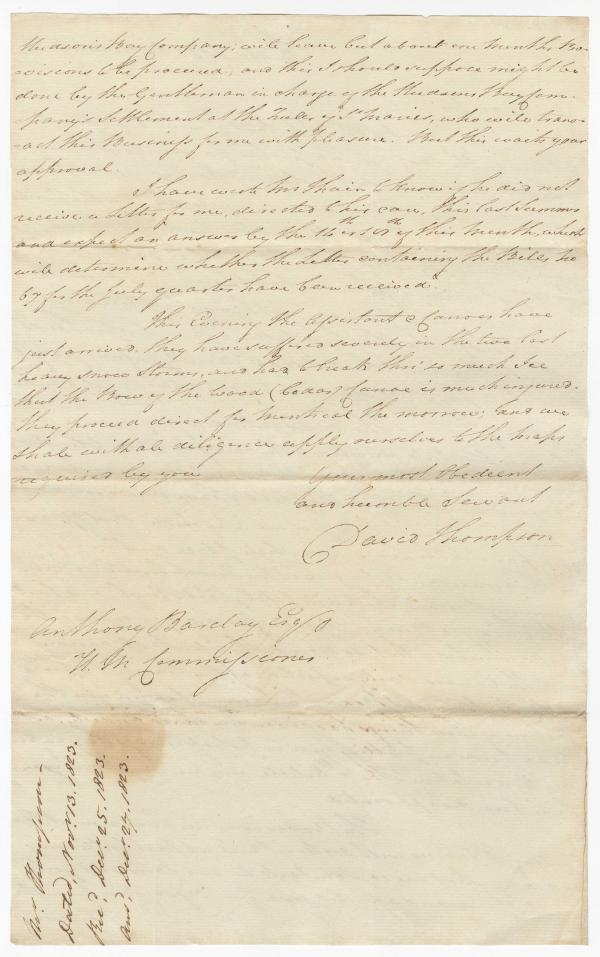 Hudson's Bay Company; will leave but about one months Pro-
-visions to be procured, and this I should suppose might be
done by the Gentleman in charge of the Hudsons Bay Com-
-pany's Settlement at the Falls of St Maries, who will trans-
-act this Business for me with pleasure. But this waits your
approval.
I have wrote Mr Thain to know if he did not
receive a Letter for me, directed to his care, this last Summer
and expect an answer by the 14th or 15th of this Month, which
will determine whether the Letter containing the Bills
for the July quarter have been received.
This Evening the Assistant & Canoes have
just arrived, they have suffered severely in the two last
heavy Snow Storms, and had to break thro so much Ice
that the Bow of the wood (Cedar) Canoe is much injured.
They proceed direct for Montreal the morrow; and we
shall with all diligence apply ourselves to the maps
required by you
Your most Obedient
and humble Servant
David Thompson
Anthony Barclay Esqr
H. M Commissioner
Mr Thompson—
Dated, Novr. 13. 1823.
Recd. Decr. 25. 1823.
Ansd. Decr. 27. 1823.